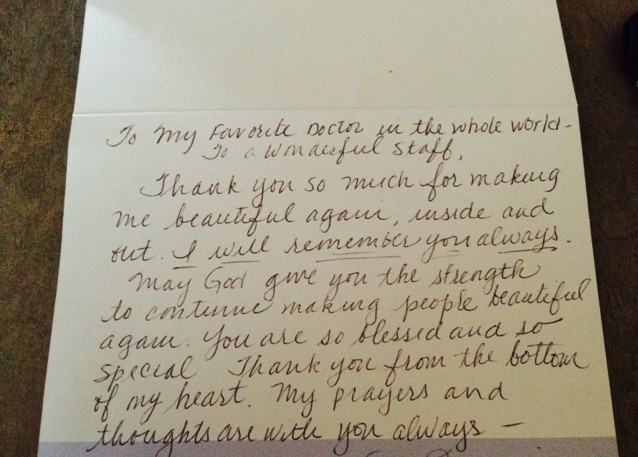 To my Favorite Doctor in the whole world -
To a wonderful staff,
Thank you so much for making
me beautiful again, inside and
out. I will remember you always.
May God give you the strength
to continue making people beautiful
again. You are so blessed and so
special Thank you from the bottom
of my heart. My prayers and
thoughts are with you always -